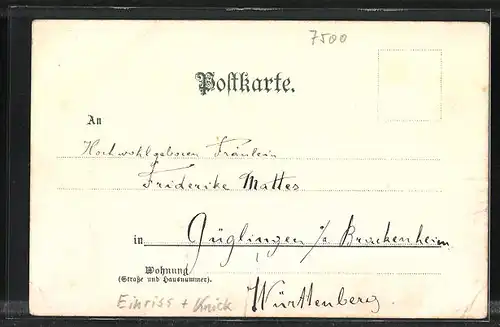 7500
Postkarte.
An
Hochwohlgeboren Fräulein
Friderike Mattes
in Güglingen i/a Brackenheim
Wohnung
(Straße und Hausnummer).
Württemberg.
Einriss + Knick